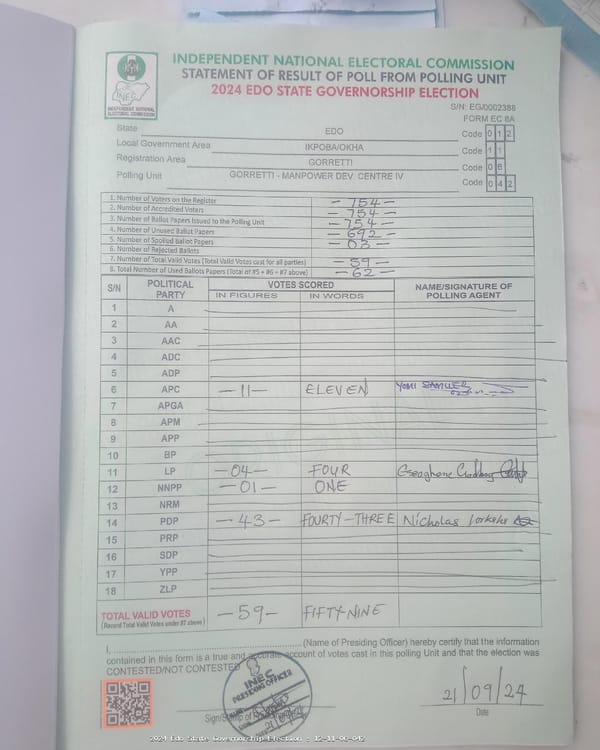 INDEPENDENT NATIONAL ELECTORAL COMMISSION
STATEMENT OF RESULT OF POLL FROM POLLING UNIT
2024 EDO STATE GOVERNORSHIP ELECTION
INEC
INDEPENDENT NATIONAL ELECTORAL COMMISSION
S/N: EG/0002388
FORM EC 8A
State EDO Code 0 1 2
Local Government Area IKPOBA/OKHA Code 1 1
Registration Area GORRETTI Code 0 6
Polling Unit GORRETTI - MANPOWER DEV. CENTRE IV Code 0 4 2
1. Number of Voters on the Register - 754 -
2. Number of Accredited Voters - 754 -
3. Number of Ballot Papers Issued to the Polling Unit - 754 -
4. Number of Unused Ballot Papers - 692 -
5. Number of Spoiled Ballot Papers - 03 -
6. Number of Rejected Ballots
7. Number of Total Valid Votes (Total Valid Votes cast for all parties) - 59 -
8. Total Number of Used Ballots Papers (Total of #5 + #6 + #7 above) - 62 -
S/N POLITICAL PARTY VOTES SCORED NAME/SIGNATURE OF POLLING AGENT
IN FIGURES IN WORDS
1 A
2 AA
3 AAC
4 ADC
5 ADP
6 APC - 11 - ELEVEN YOMI SAMUEL
7 APGA
8 APM
9 APP
10 BP
11 LP - 04 - FOUR
12 NNPP - 01 - ONE
13 NRM
14 PDP - 43 - FOURTY-THREE Nicholas
15 PRP
16 SDP
17 YPP
18 ZLP
TOTAL VALID VOTES - 59 - FIFTY NINE
(Record Total Valid Votes under #7 above)
I, (Name of Presiding Officer) hereby certify that the information
contained in this form is a true and accurate account of votes cast in this polling Unit and that the election was
CONTESTED/NOT CONTESTED
INEC
PRESIDING OFFICER
Sign/Stamp of
21/09/24
Date
2024 Edo State Governorship Election - 12-11-06-042